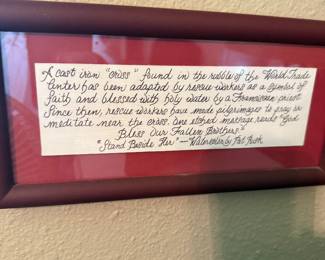 A cast iron "cross" found in the rubble of the World Trade
Center has been adapted by rescue workers as a symbol of
faith and blessed with holy water by a Franciscan priest
Since then, rescue workers have made pilgrimages to pray or
meditate near the cross. One etched message reads "God
Bless Our Fallen Brothers"
"Stand Beside Her" — Watercolor by Pat